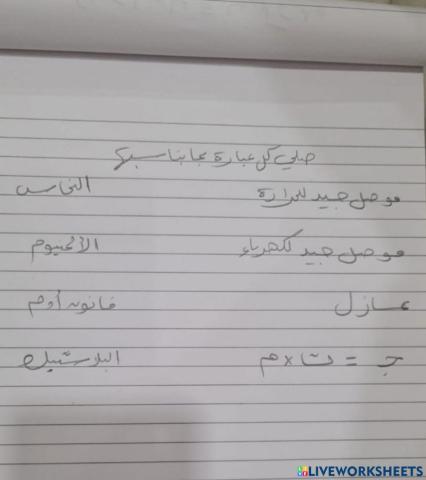 صلي كل عبارة بما يناسبها
موصل جيد للحرارة النحاس
موصل جيد للكهرباء الألمنيوم
عازل قانون أوم
جـ = ت × م البلاستيك
LIVEWORKSHEETS